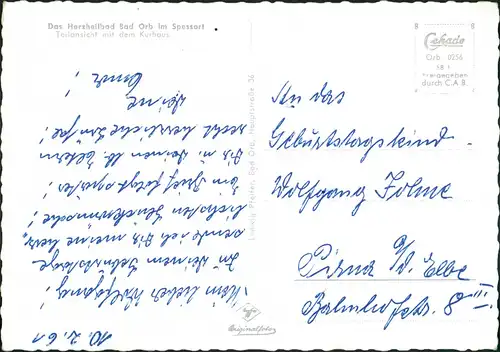 Das Herzheilbad Bad Orb im Spessart
Teilansicht mit dem Kurhaus
Cekade
Orb 0256
freigegeben
durch C.A.B.
An das
Geburtstagskind
Wolfgang Folme
Pirna a/d. Elbe
Bahnhofstr. 8 III
Bad Orb, Hauptstraße 36
Agfa
Originalfoto
10.2.61
Mein lieber Wolfgang!
Zu Deinem Geburtstage
sende ich Dir meine herz-
lichsten Glückwünsche!
Ein Brief folgt später!
Dir u. Deinen lb. Eltern
recht herzliche Grüße!
Deine